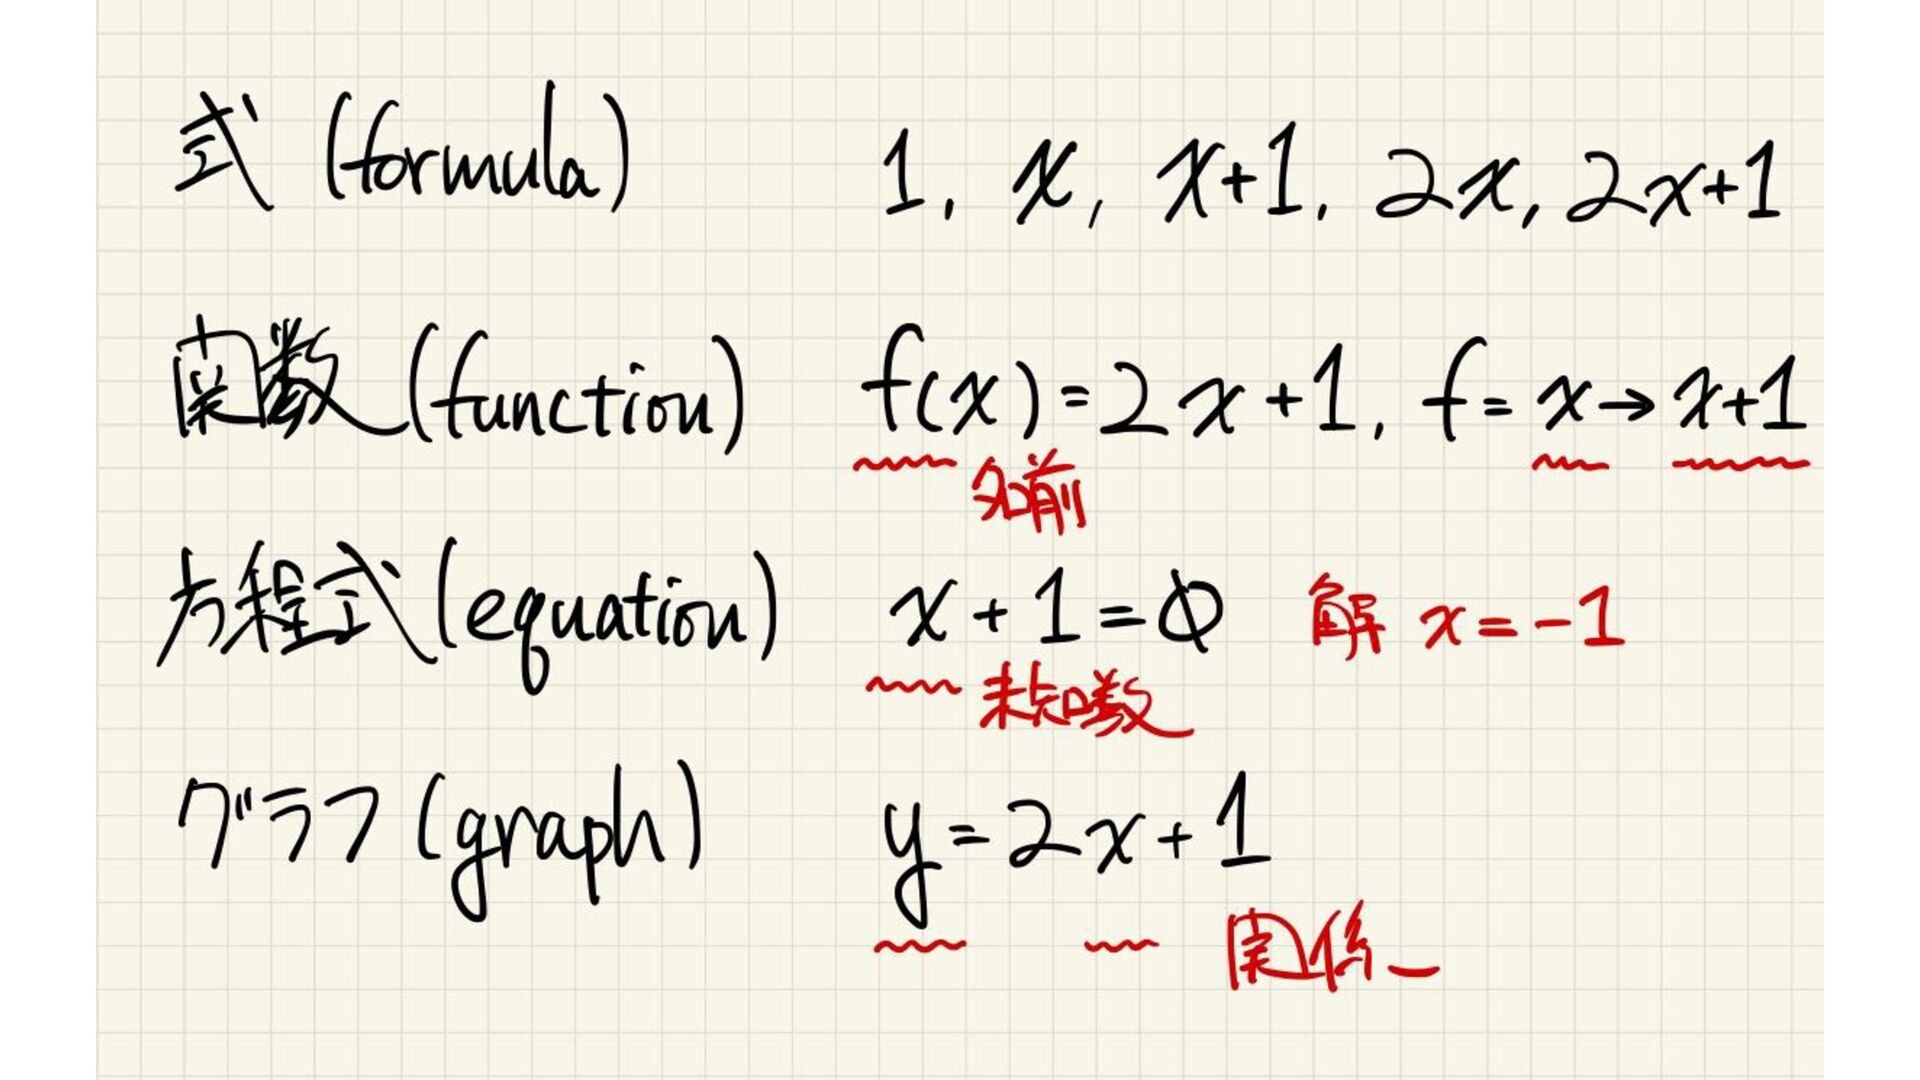 式 (formula) 1, x, x+1, 2x, 2x+1
関数 (function) f(x)=2x+1, f=x→x+1
名前
方程式 (equation) x+1=0 解 x=-1
未知数
グラフ (graph) y=2x+1
関係